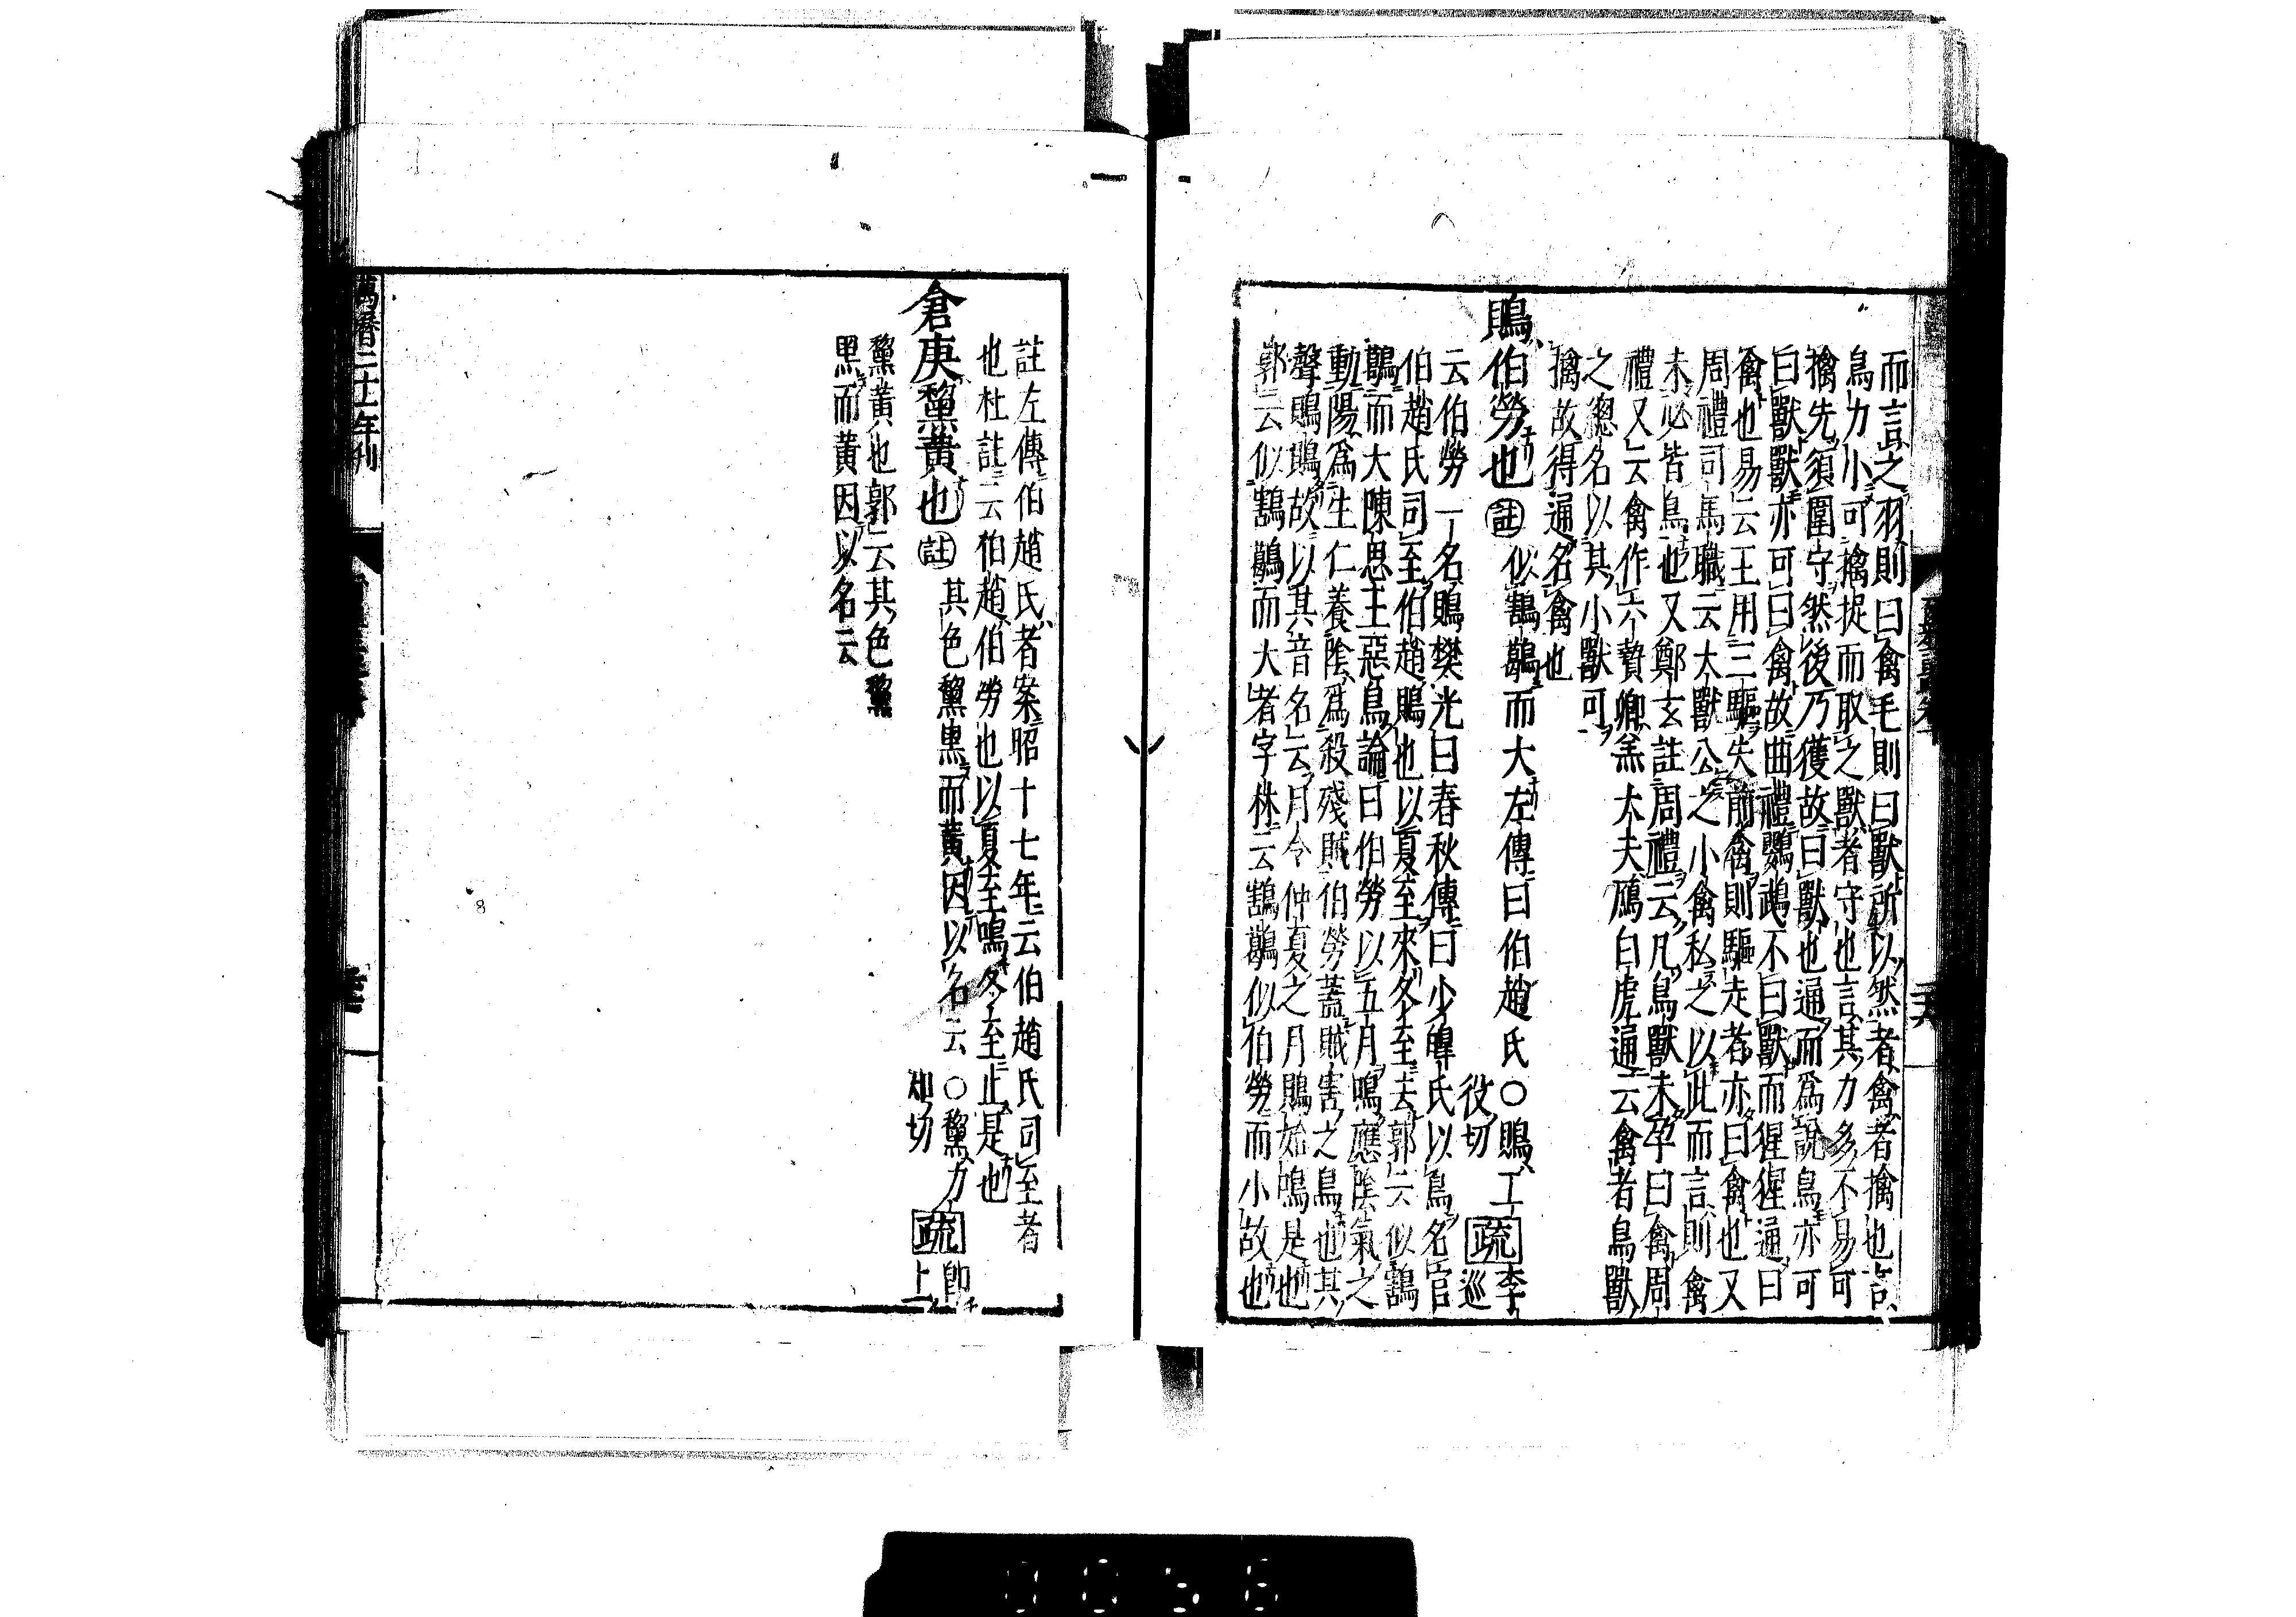 而言之羽則曰禽毛則曰獸所以然者禽者擒也言
鳥力小可擒捉而取之獸者守也言其力多不易可
擒先須圍守然後乃獲故曰獸也通而爲說鳥亦可
曰獸獸亦可曰禽故曲禮鸚鵡不曰獸而猩猩通曰
禽也易云王用三驅失前禽則驅走者亦曰禽也又
周禮司馬職云大獸公之小禽私之以此而言則禽
未必皆鳥也又鄭玄註周禮云凡鳥獸未孕曰禽周
禮又云禽作六贄卿羔大夫鴈白虎通云禽者鳥獸
之總名以其小獸可
擒故得通名禽也
鵙伯勞也註似鶷鶡而大左傳曰伯趙氏○鵙工
役切疏李巡
云伯勞一名鵙樊光曰春秋傳曰少皞氏以鳥名官
伯趙氏司至伯趙鵙也以夏至來冬至去郭云似鶷
鶡而大陳思王惡鳥論曰伯勞以五月鳴應陰氣之
動陽爲生仁養陰爲殺殘賊伯勞蓋賊害之鳥也其
聲鵙鵙故以其音名云月令仲夏之月鵙始鳴是也
郭云似鶷鶡而大者字林云鶷鶡似伯勞而小故也
註左傳伯趙氏者案昭十七年云伯趙氏司至者
也杜註云伯趙伯勞也以夏至鳴冬至止是也
倉庚黧黃也註其色黧黑而黃因以名云○黧力
知切疏卽上
黧黃也郭云其色黧
黑而黃因以名云
萬曆二十一年刊